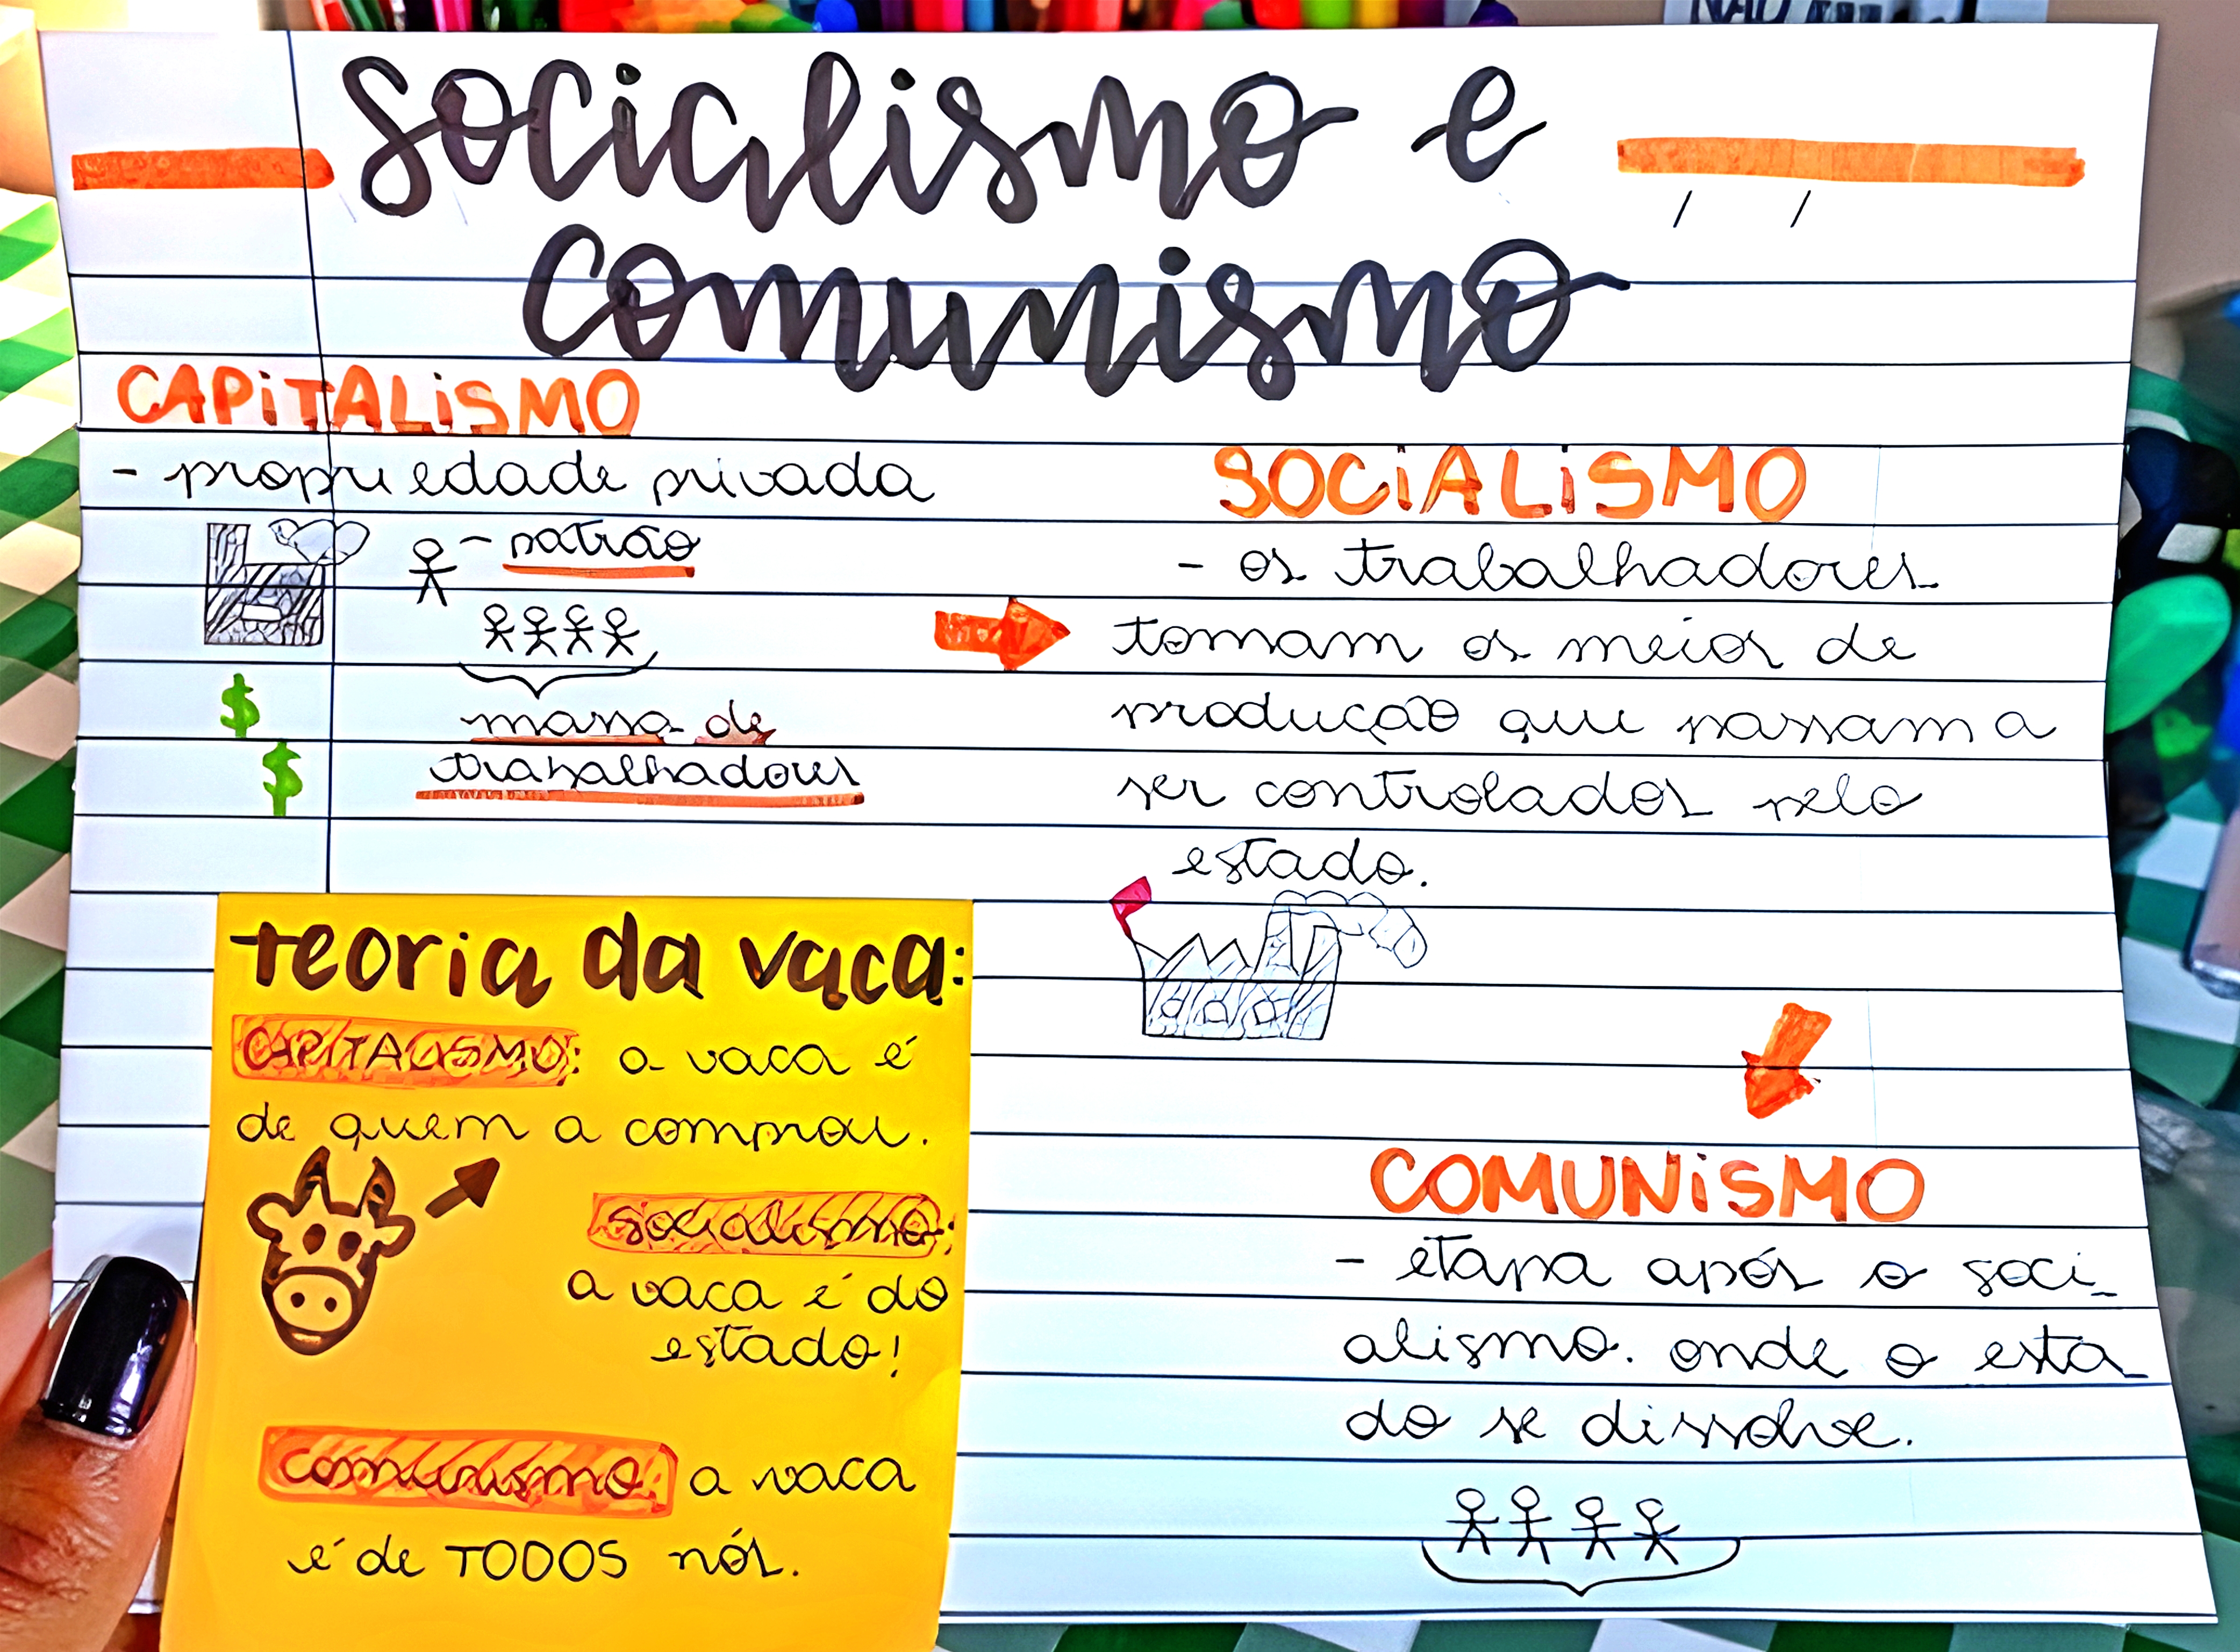 socialismo e
comunismo
CAPITALISMO
- propriedade privada
- patrão
massa de
trabalhadores
$
$
SOCIALISMO
- os trabalhadores
tomam os meios de
produção que passam a
ser controlados pelo
estado.
teoria da vaca:
CAPITALISMO: a vaca é
de quem a comprou.
socialismo:
a vaca é do
estado!
comunismo: a vaca
é de TODOS nós.
COMUNISMO
- etapa após o soci_
alismo. onde o esta_
do se dissolve.